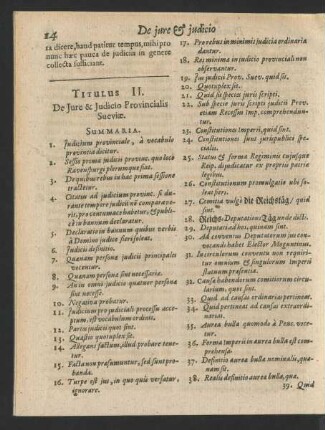 24
De jure & judicio
ra dicere, haud patent tempus, mihi pro
nunc hæc pauca de judiciis in genere
collecta sufficiant.
TITULUS II.
De Jure & Judicio Provincialis
Sueviæ.
SUMMARIA.
1. Judicium provinciale, à vocabulo
provincia dicitur.
2. Sessio prima judicii provinc. quæ loco
Ravenspurgi plerumque fiat.
3. De quibus rebus in hac prima sessione
tractetur.
4. Citatus ad judicium provinc. si du-
rante tempore judicii nō comparave-
rit, pro contumace habetur, & publi-
cè in bannum declaratur.
5. Declaratio in bannum quibus verbis
à Domino judice fieri soleat.
6. Judicii definitio.
7. Quænam persona judicii principales
vocentur.
8. Quænam persona sint necessaria.
9. An in omni judicio quatuor persona
sint necesse.
10. Negativa probatur.
11. Judicium pro judiciali processu acce-
ptum, est vocabulum ordinis.
12. Partes judicii quot sint.
13. Quæstio quotuplex sit.
14. Allegans factum, illud probare tene-
tur.
15. Facta non præsumuntur, sed sunt pro-
banda.
16. Turpe est jus, in quo quis versatur,
ignorare.
17. Pro rebus in minimis judicia ordinaria
dantur.
18. Res minima in judicio provinciali non
observantur.
19. Jus judicii Prov. Suev. quid sit.
20. Quotuplex sit.
21. Quid sit species juris scripti.
22. Sub specie juris scripti Jud. Prov.
etiam Recessus Imp. comprehendun-
tur.
23. Constitutiones Imperii, quid sint.
24. Constitutiones sunt juris publici spe-
cialis.
25. Status & forma Regiminis cujusque
Reip. dijudicatur ex effectu majesta-
tis.
26. Constitutionum promulgatio ubi so-
leat fieri.
27. Comitia vulgò die Reichstäg/ quid
sint.
28. Reichs-Deputations Täg unde dicti.
29. Deputati ad hos, quinam sint.
30. Ad conventus Deputatorum jus con-
vocandi habet Elector Moguntinus.
31. Ad ejusmodi conventu non requiri-
tur omnium & singulorum Imperii
statuum præsentia.
32. Causa habendorum comitiorum circu-
larium, quot sint.
33. Quid ad causas ordinarias pertineat.
34. Quid ad extraordinarias pertineat,
& quot sint.
35. Aurea bulla quomodo à Ponc. voce-
tur.
36. Forma imperii in aurea bulla est
comprehensa.
37. Definitio aurea bulla nominalis, quæ-
nam sit.
38. Realis definitio aurea bulla, qua.
39. Quid